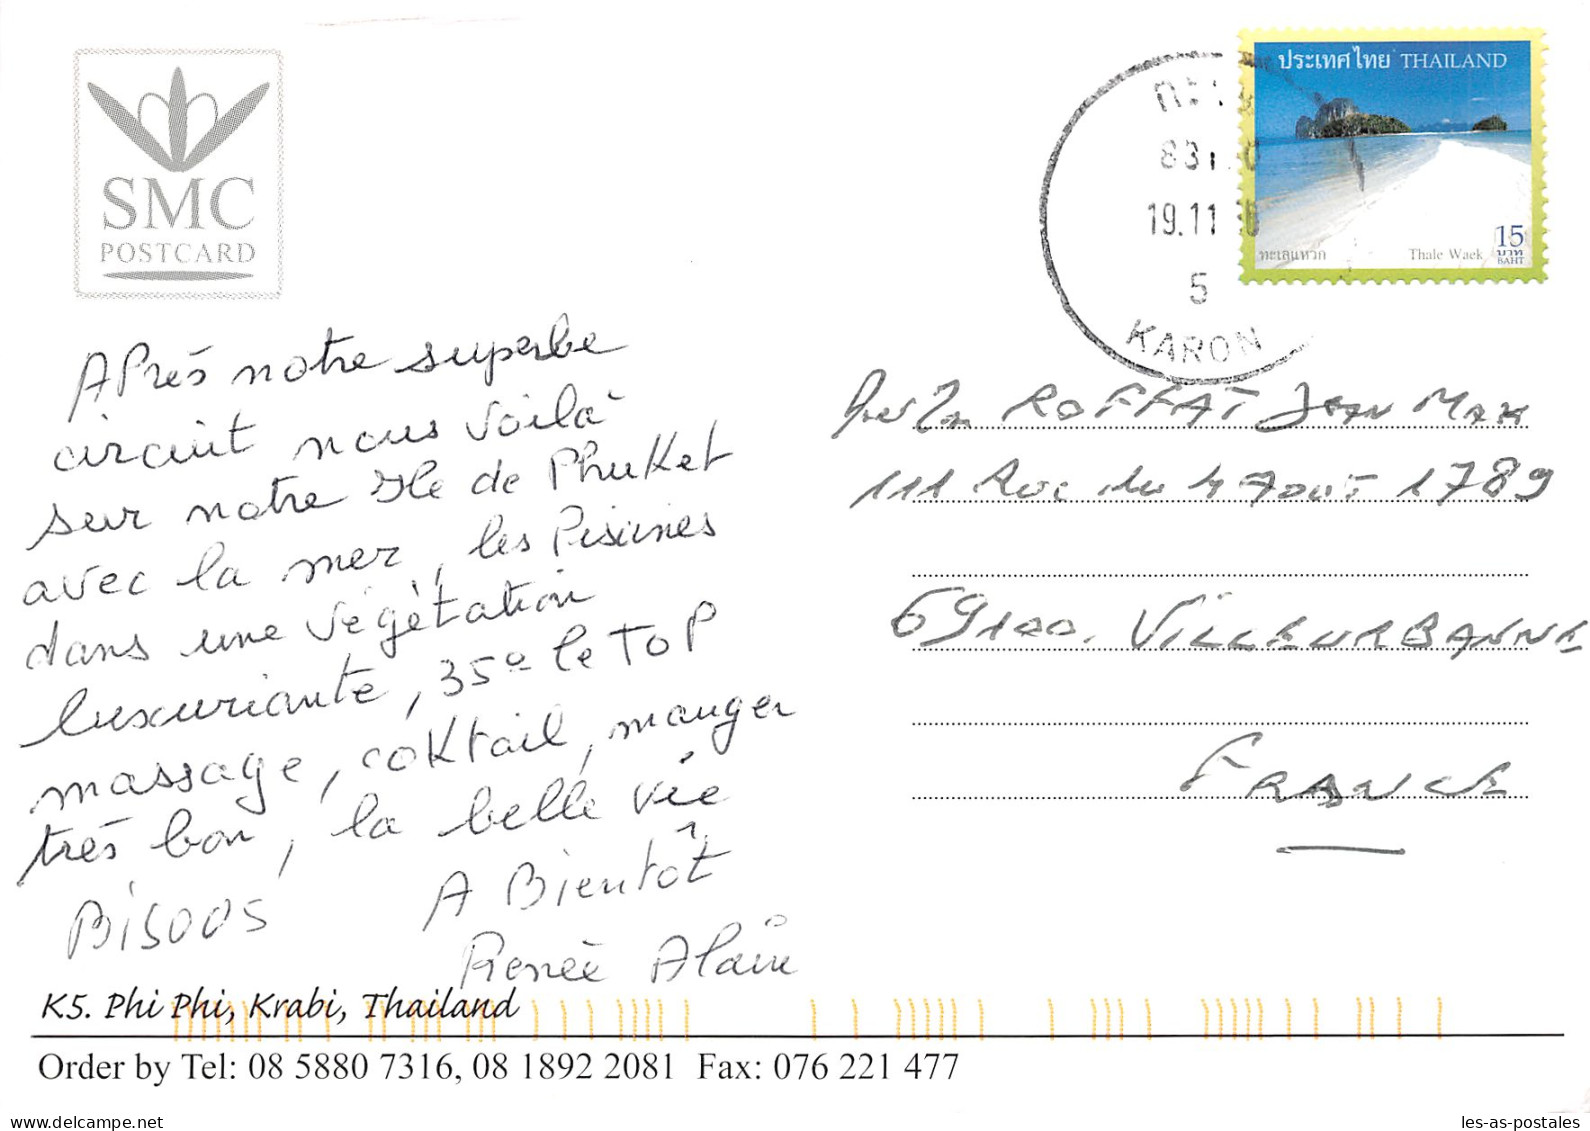 SMC
POSTCARD
ประเทศไทย THAILAND
15
บาท
BAHT
ทะเลแหวก Thale Waek
19.11
5
KARON
APrés notre superbe
circuit nous voilà
sur notre Ile de PhuKet
avec la mer, les Piscines
dans une végétation
luxuriante, 35° le ToP
massage, coKtail, manger
très bon, la belle vie
Bisous A Bientôt
Renée Alain
ROFFAT Jean Max
111 Rue du 4 Aout 1789
69100. VILLEURBANNE
FRANCE
K5. Phi Phi, Krabi, Thailand
Order by Tel: 08 5880 7316, 08 1892 2081 Fax: 076 221 477
delcampe.net
les-as-postales